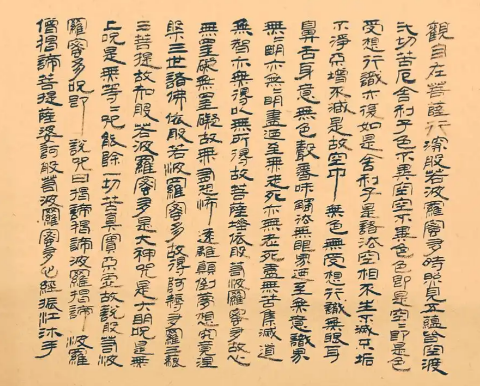 觀自在菩薩行深般若波羅蜜多時照見五蘊皆空度
一切苦厄舍利子色不異空空不異色色即是空〻即是色
受想行識亦復如是舍利子是諸法空相不生不滅不垢
不淨不增不減是故空中無色無受想行識無眼耳
鼻舌身意無色聲香味觸法無眼界迺至無意識界
無〻明亦無〻明盡迺至無老死亦無老死盡無苦集滅道
無智亦無得以無所得故菩薩埵依般若波羅蜜多故心
無罣礙無罣礙故無有恐怖遠離顛倒夢想究竟涅
槃三世諸佛依般若波羅蜜多故得阿耨多羅三藐
三菩提故知般若波羅蜜多是大神咒是大明咒是無
上咒是無等〻咒能除一切苦真實不虛故說般若波
羅蜜多咒即說咒曰揭諦揭諦波羅揭諦波羅
僧揭諦菩提薩婆訶般若波羅蜜多心經振江沐手